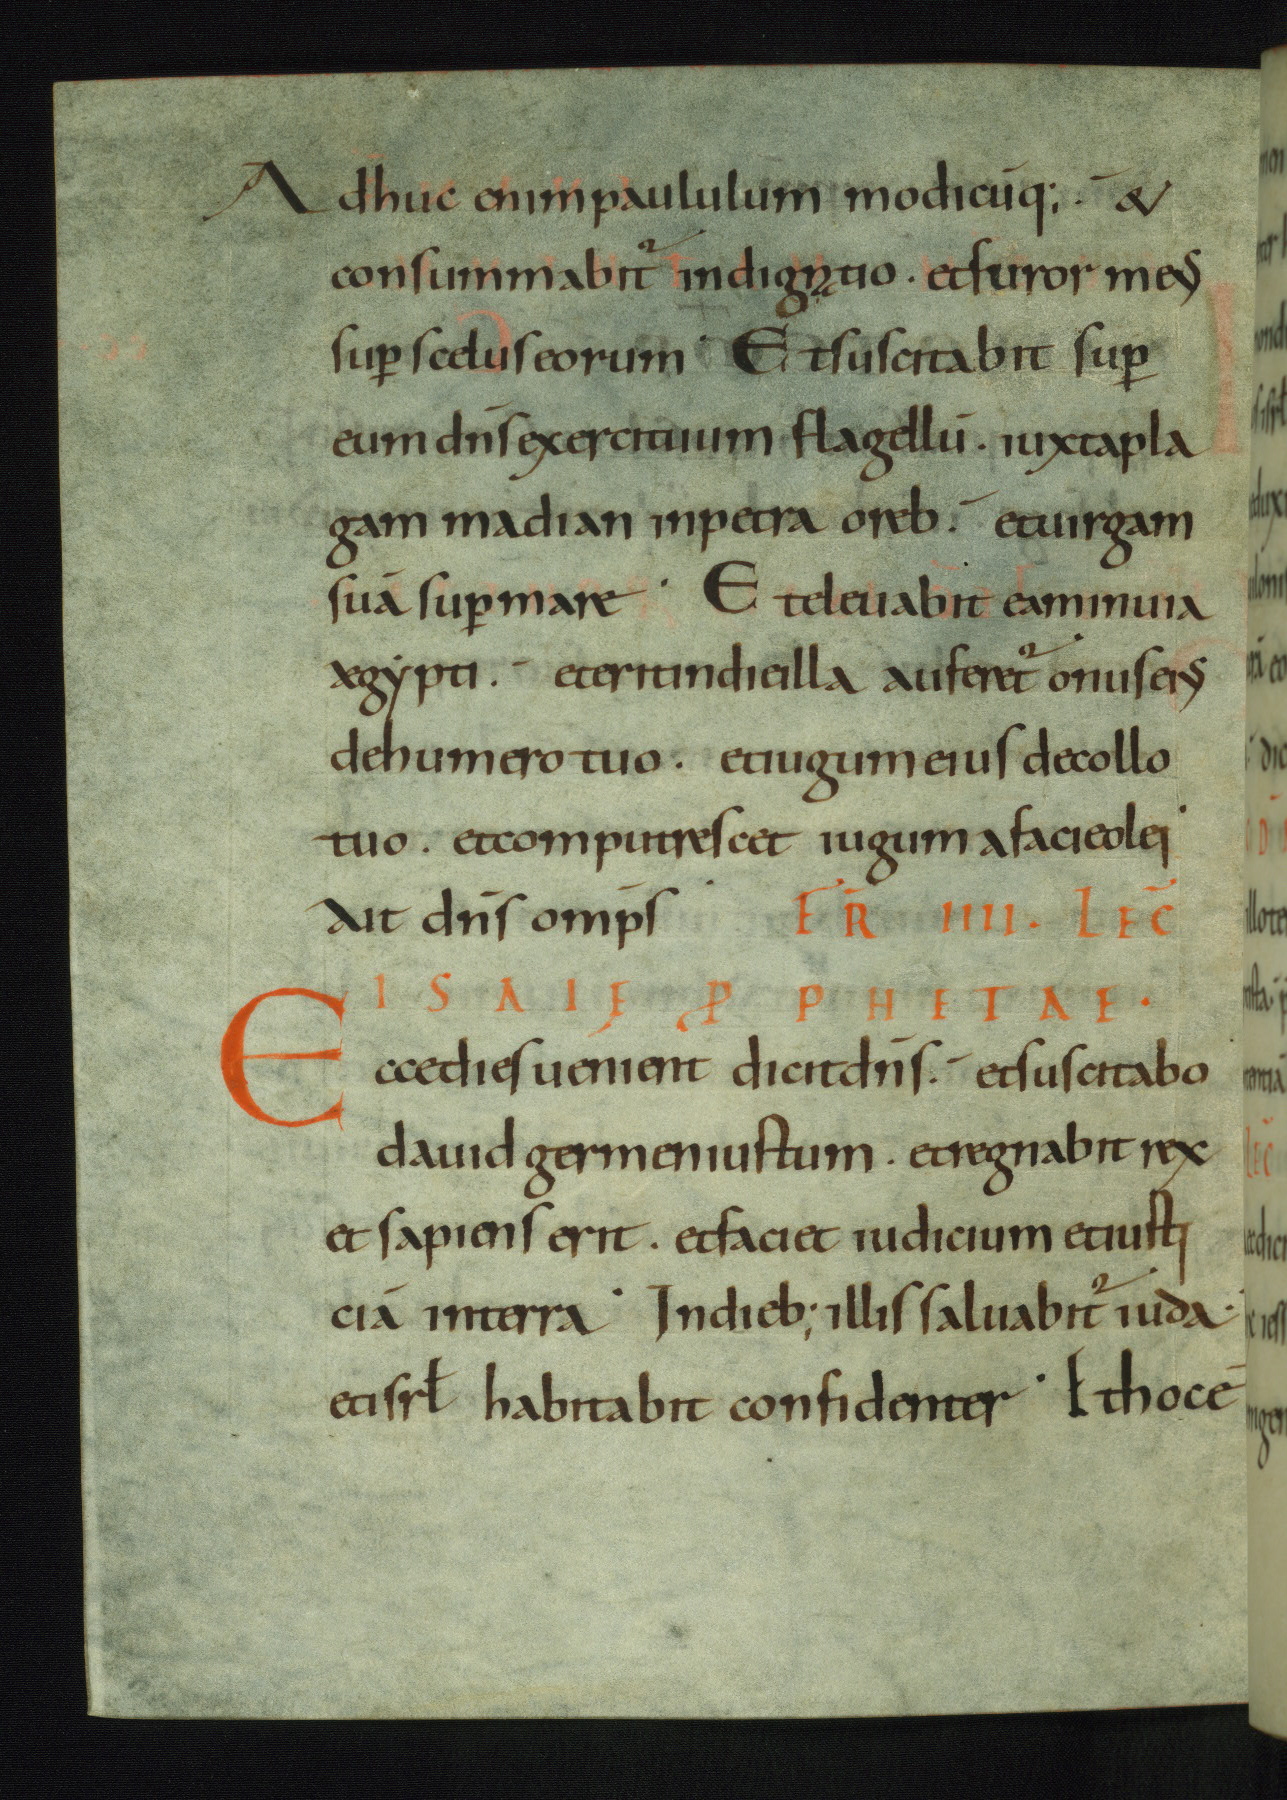 Adhuc enim paululum modicūq; · &
consummabit᷑ indignatio · et furor meus
suꝑ scelus eorum · Et suscitabit suꝑ
eum dn̄s exercituum flagellū · iuxta pla
gam madian in petra oreb · et uirgam
suā suꝑ mare · Et eleuabit eam in uia
ægypti · et erit in die illa auferet᷑ onus eius
de humero tuo · et iugum eius de collo
tuo · et computrescet iugum a facie olei
ait dn̄s omp̄s · FR̄ IIII · LEC̄
ISAIĘ ꝒPHETAE ·
Ecce dies uenient dicit dn̄s · et suscitabo
dauid germen iustum · et regnabit rex
et sapiens erit · et faciet iudicium et iusti
ciā in terra · In dieb; illis saluabit᷑ iuda ·
et isrł habitabit confidenter · Et hoc ē